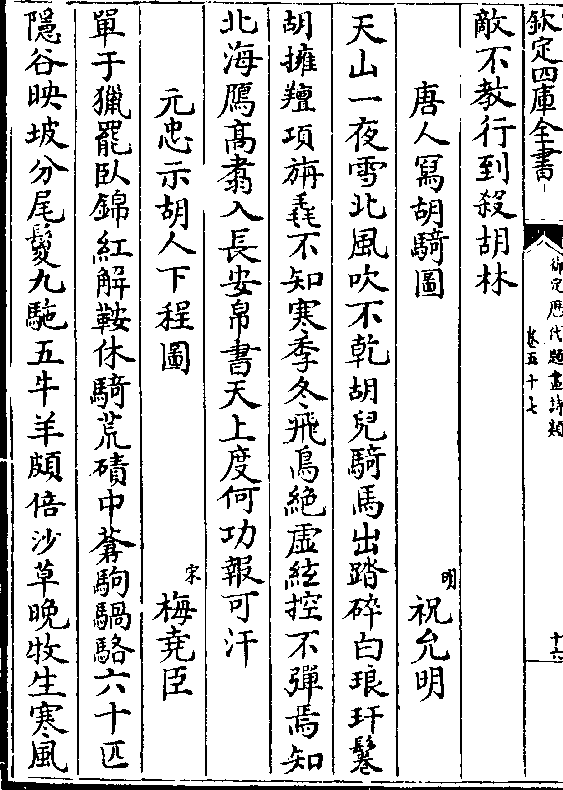 欽定四庫全書
御定歷代題畫詩類
卷五十七
十六
敵不教行到殺胡林
唐人寫胡騎圖
明 祝允明
天山一夜雪北風吹不乾胡兒騎馬出踏碎白琅玕鬈
胡擁羶項旃毳不知寒季冬飛鳥絶虛絃控不彈焉知
北海鴈高翥入長安帛書天上度何功報可汗
元忠示胡人下程圖
宋 梅堯臣
單于獵罷臥錦紅解鞍休騎荒磧中蒼駒騧駱六十匹
隱谷映坡分尾鬉九駞五牛羊頗倍沙草晚牧生寒風